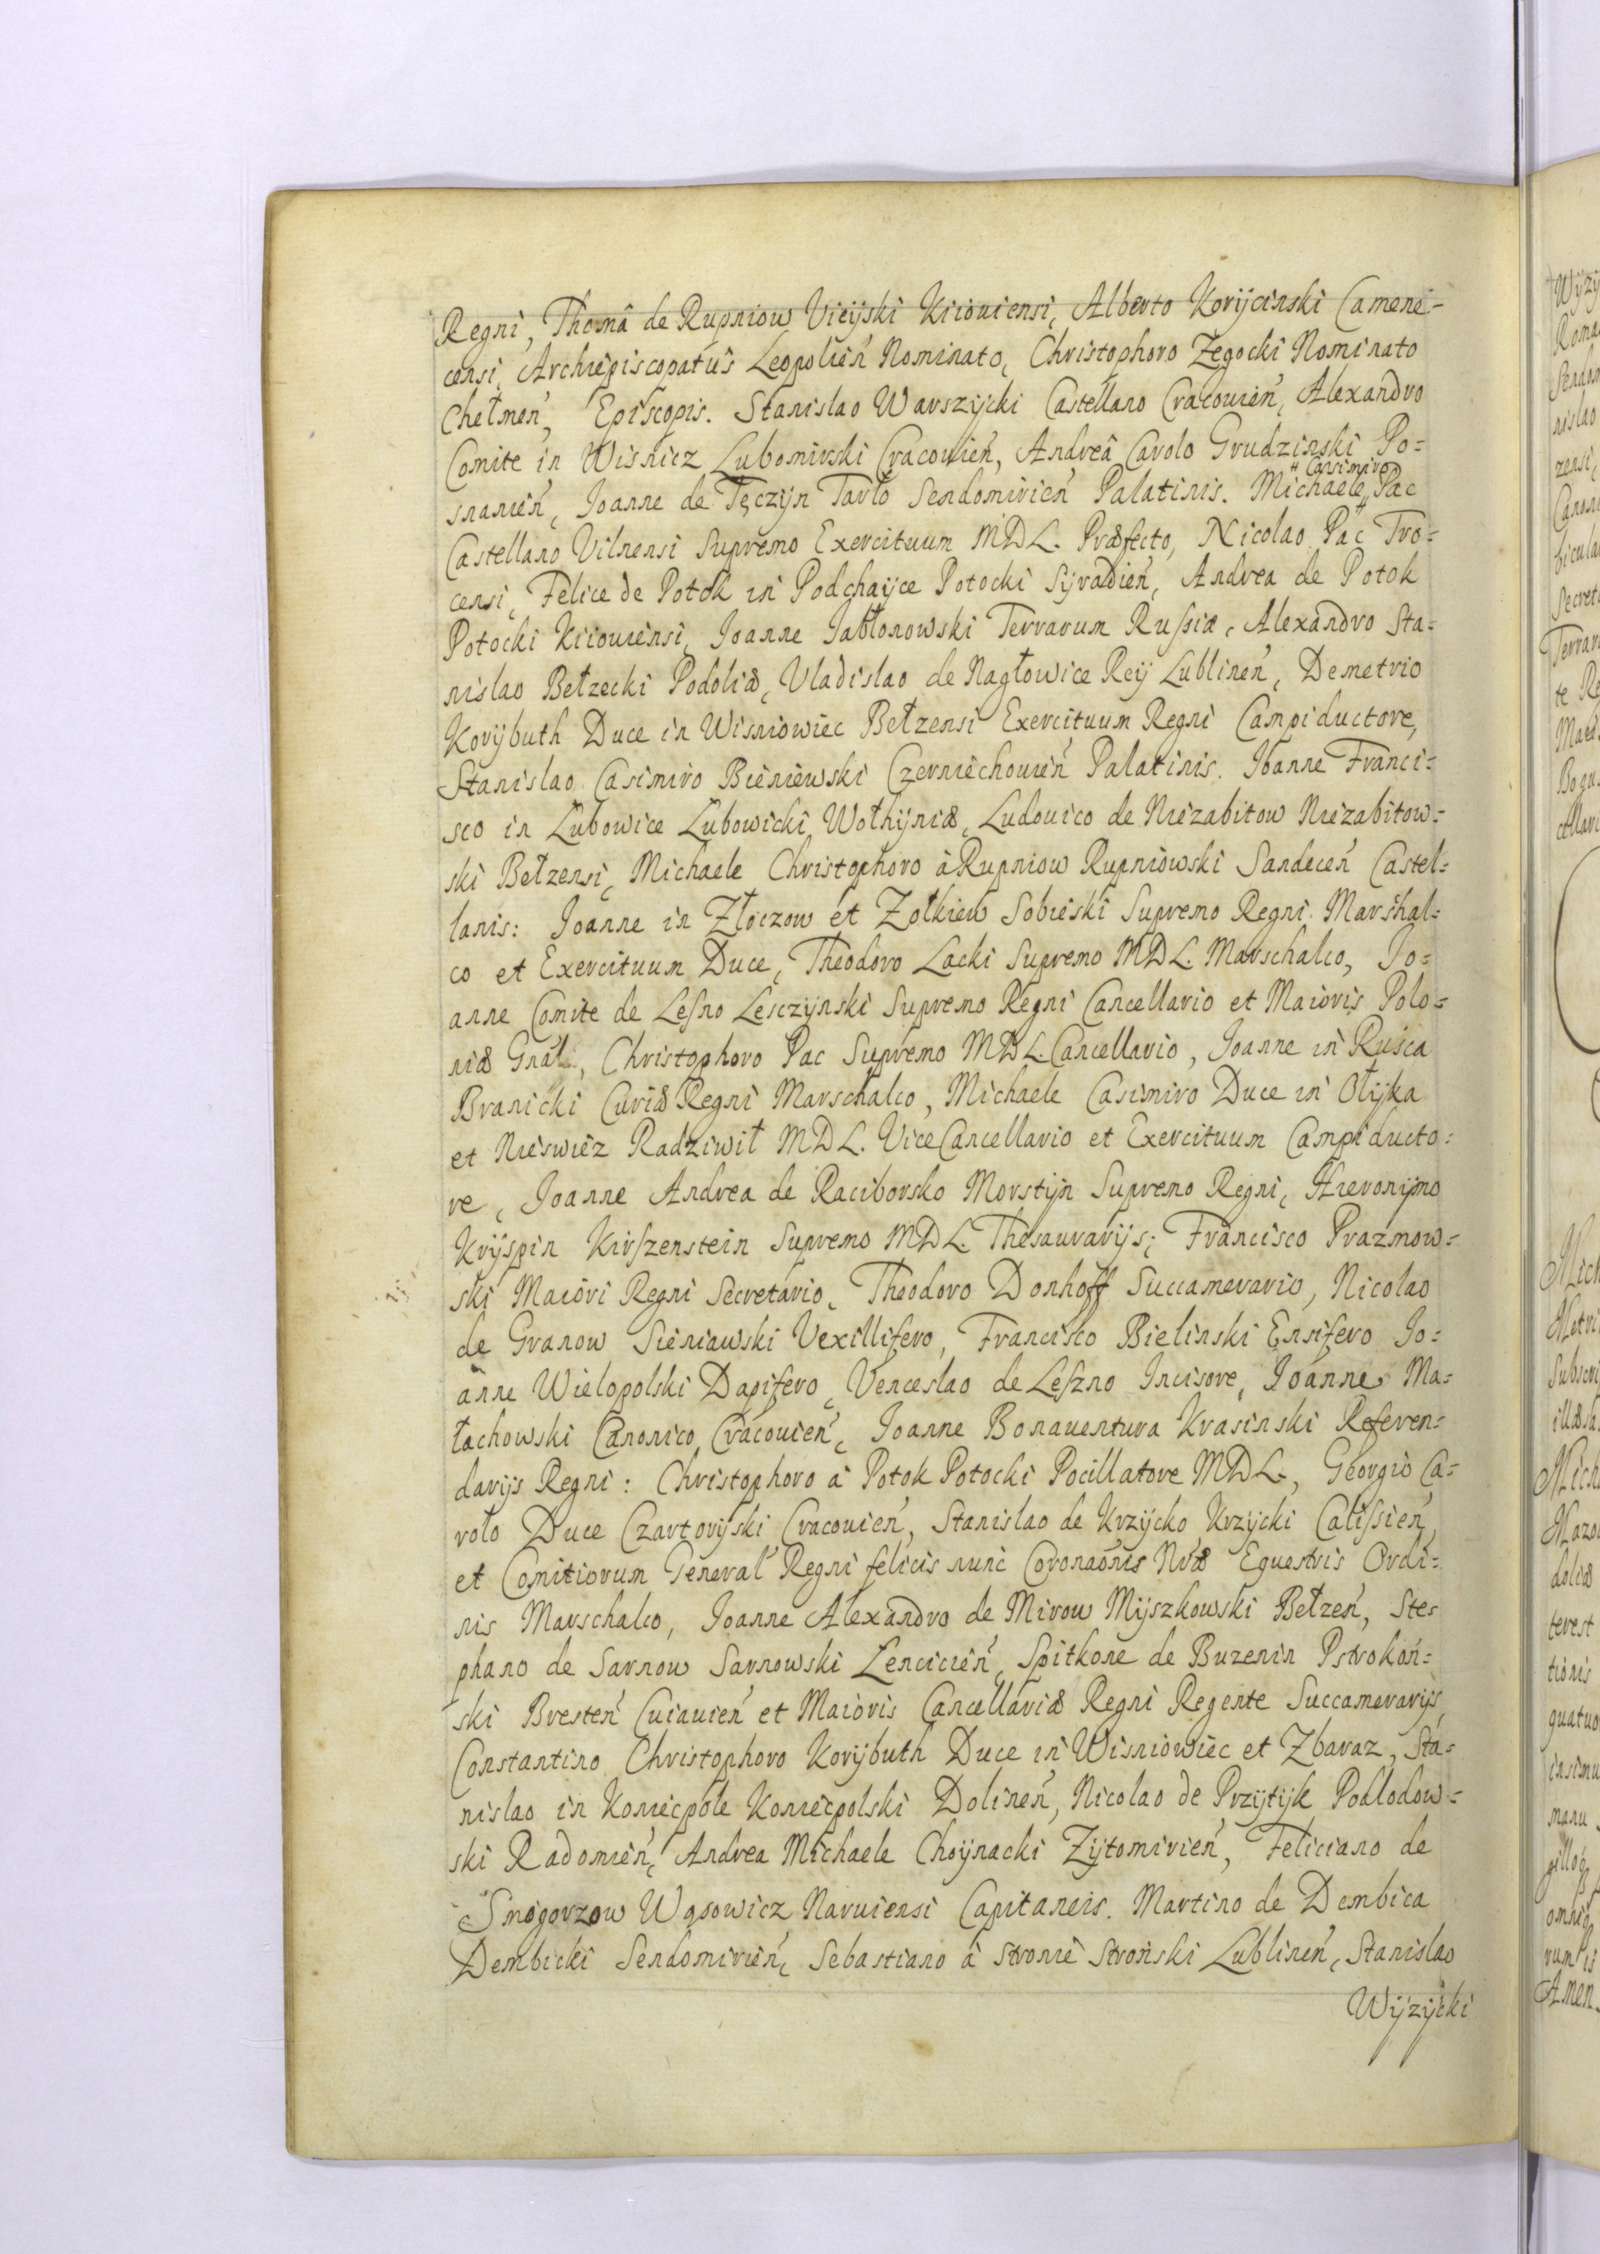 Regni, Thomâ de Rupniow Vieijski Kiiouiensi, Alberto Korijcinski Camene-
censi, Archiepiscopatûs Leopolień Nominato, Christophoro Zegocki Nominato
Chełmeń, Episcopis. Stanislao Warszijcki Castellano Cracouień, Alexandro
Comite in Wisnicz Lubomirski Cracouień, Andreâ Carolo Grudzinski Po=
snanień, Joanne de Tęczijn Tarło Sendomirień Palatinis. Michaele Casimiro Pac
Castellano Vilnensi Supremo Exercituum MDL. Præfecto, Nicolao Pac Tro=
censi, Felice de Potok in Podchaijce Potocki Sijradień, Andrea de Potok
Potocki Kiiouiensi, Joanne Jabłonowski Terrarum Russiæ, Alexandro Sta=
nislao Bełzecki Podoliæ, Vladislao de Nagłowice Reij Lublineń, Demetrio
Korijbuth Duce in Wisniowiec Bełzensi Exercituum Regni Campiductore,
Stanislao Casimiro Bieniewski Czerniechouień Palatinis. Joanne Franci=
sco in Lubowice Lubowicki Wołhijniæ, Ludouico de Niezabitow Niezabitow=
ski Bełzensi, Michaele Christophoro à Rupniow Rupniowski Sandeceń Castel=
lanis: Joanne in Złoczow et Zołkiew Sobieski Supremo Regni Marshal=
co et Exercituum Duce, Theodoro Lacki Supremo MDL. Marschalco, Jo=
anne Comite de Lesno Lesczijnski Supremo Regni Cancellario et Maioris Polo=
niæ Gnal, Christophoro Pac Supremo MDL. Cancellario, Joanne in Ruśca
Branicki Curiæ Regni Marschalco, Michaele Casimiro Duce in Ołijka
et Nieswież Radziwił MDL. ViceCancellario et Exercituum Campiducto=
re, Joanne Andrea de Raciborsko Morstijn Supremo Regni, Hieronijmo
Krijspin Kirszenstein Supremo MDL. Thesaurarijs; Francisco Prazmow=
ski Maiori Regni Secretario, Theodoro Donhoff Succamerario, Nicolao
de Granow Sieniawski Vexillifero, Francisco Bielinski Ensifero Jo=
anne Wielopolski Dapifero, Venceslao de Leszno Incisore, Joanne Ma=
łachowski Canonico Cracouień, Joanne Bonauentura Krasinski Referen=
darijs Regni: Christophoro à Potok Potocki Pocillatore MDL., Georgio Ca=
roło Duce Czartorijski Cracouień, Stanislao de Krzijcko Krzijcki Calissień,
et Comitiorum General Regni felicis nunc Coronaonis Nræ Equestris Ordi=
nis Marschalco, Joanne Alexandro de Mirow Mijszkowski Bełzeń, Ste=
phano de Sarnow Sarnowski Lencicień, Spitkone de Buzenin Pstrokoń=
ski Bresteń Cuiauień et Maioris Cancellariæ Regni Regente Succamerarijs,
Constantino Christophoro Korijbuth Duce in Wisniowiec et Zbaraz, Sta=
nislao in Koniecpole Koniecpolski Dolineń, Nicolao de Przijtijk Podlodow=
ski Radomień, Andrea Michaele Choijnacki Zijtomirień, Feliciano de
Smogorzow Wąsowicz Naruiensi Capitaneis. Martino de Dembica
Dembicki Sendomirień, Sebastiano à Stronie Stroński Lublineń, Stanislao
Wijzijcki